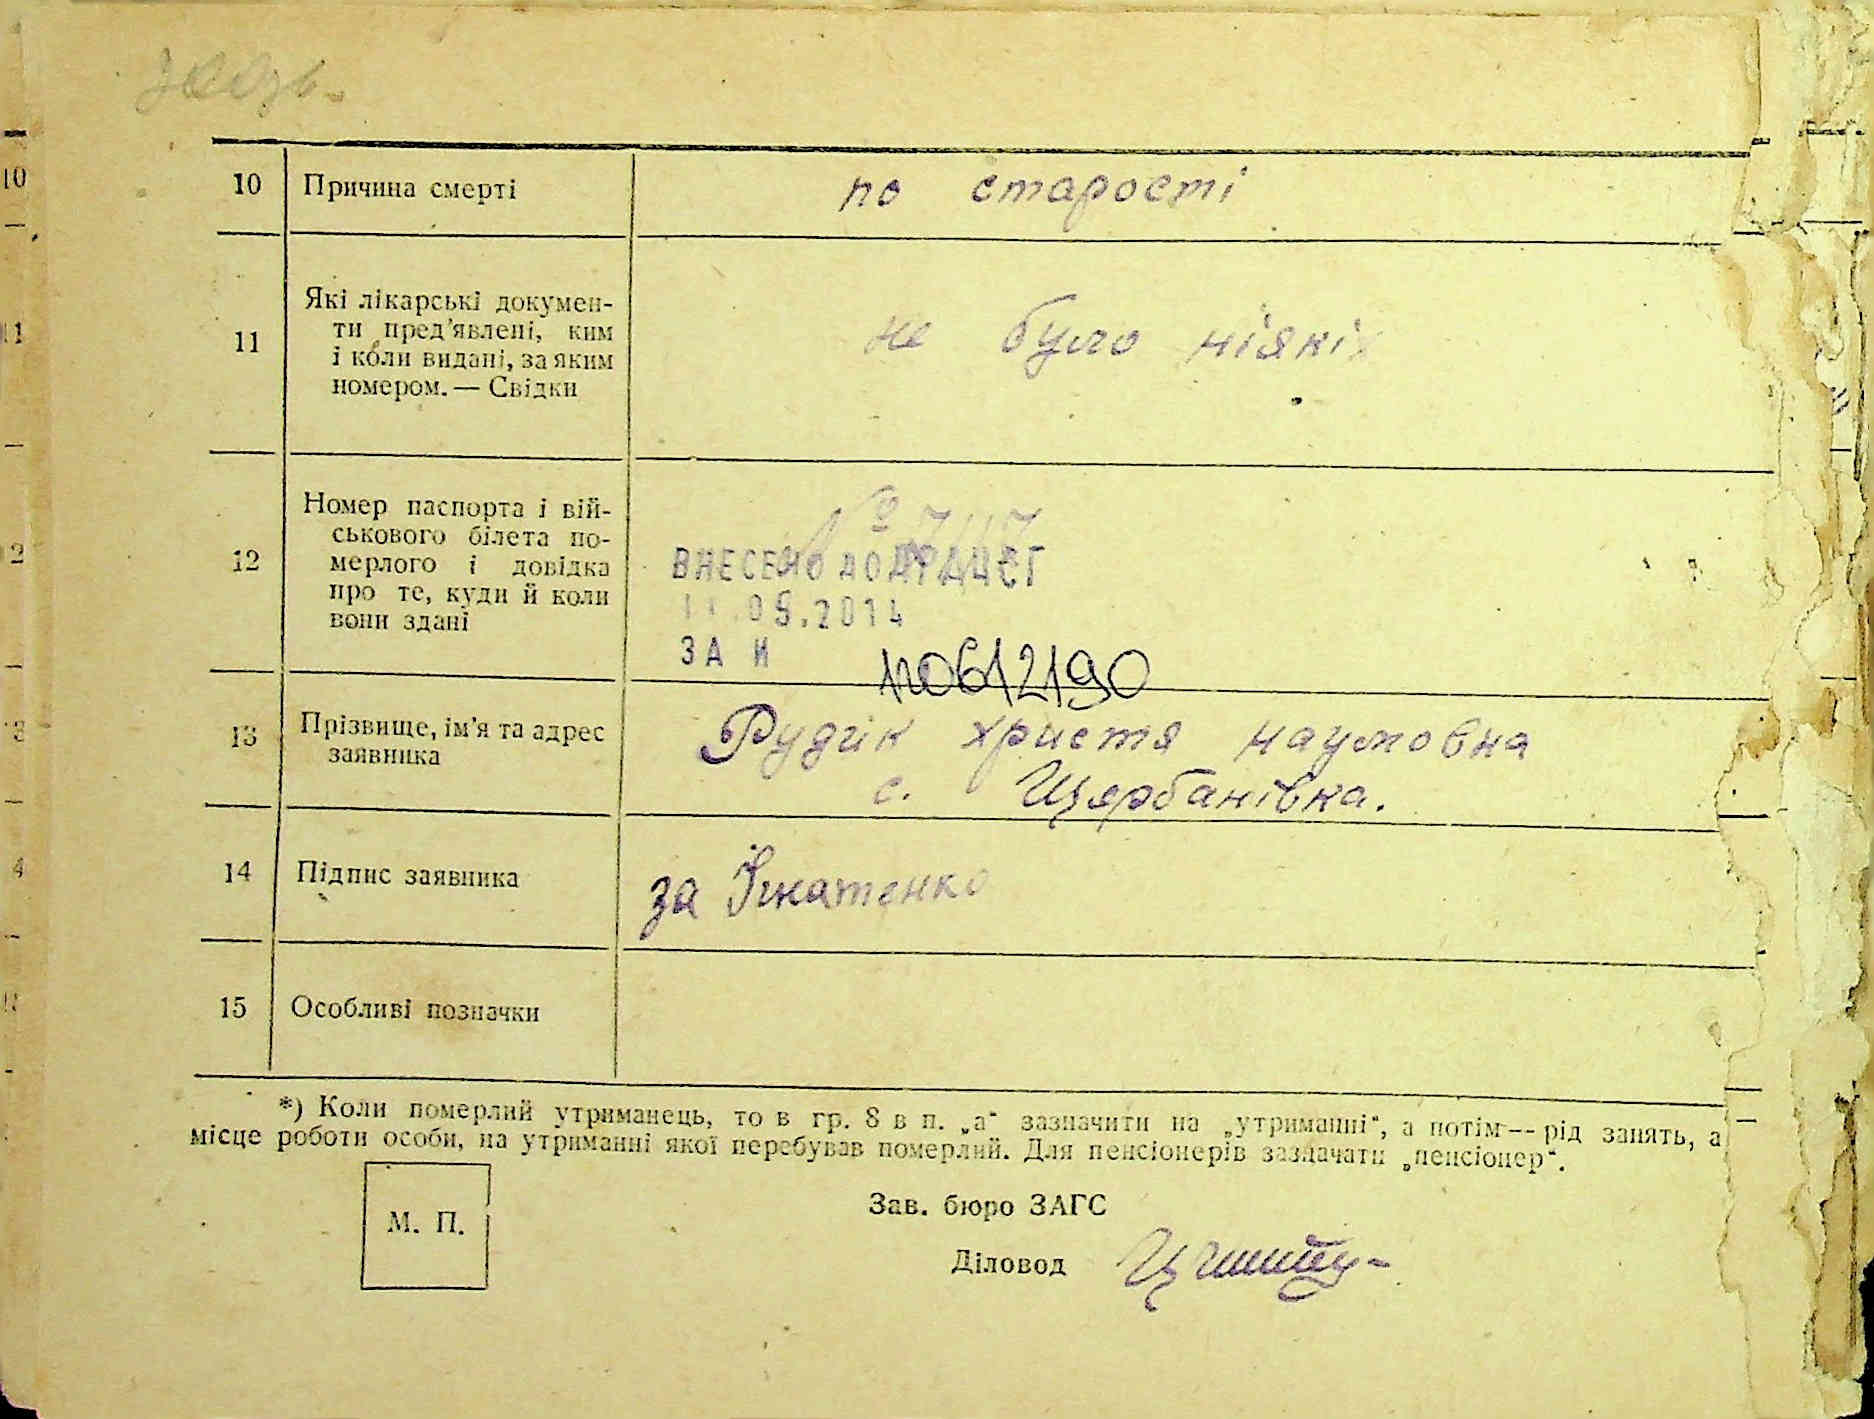 10 Причина смерті по старості
Які лікарські докумен-
ти пред'явлені, ким
11 і коли видані, за яким не було ніякі
номером. — Свідки
Номер паспорта і вій-
ськового білета по-
12 мерлого і довідка ВНЕСЕНО ДО ДРАЦСГ
про те, куди й коли 11.09.2014
вони здані ЗА И
13 Прізвище, ім'я та адрес Рудік христя наумовна
заявника с. Щярбанівка.
14 Підпис заявника за Ігнатенко
15 Особливі позначки
*) Коли померлий утриманець, то в гр. 8 в п. „а“ зазначити на „утриманні“, а потім — рід занять, а
місце роботи особи, на утриманні якої перебував померлий. Для пенсіонерів зазначати „пенсіонер“.
М. П.
Зав. бюро ЗАГС
Діловод